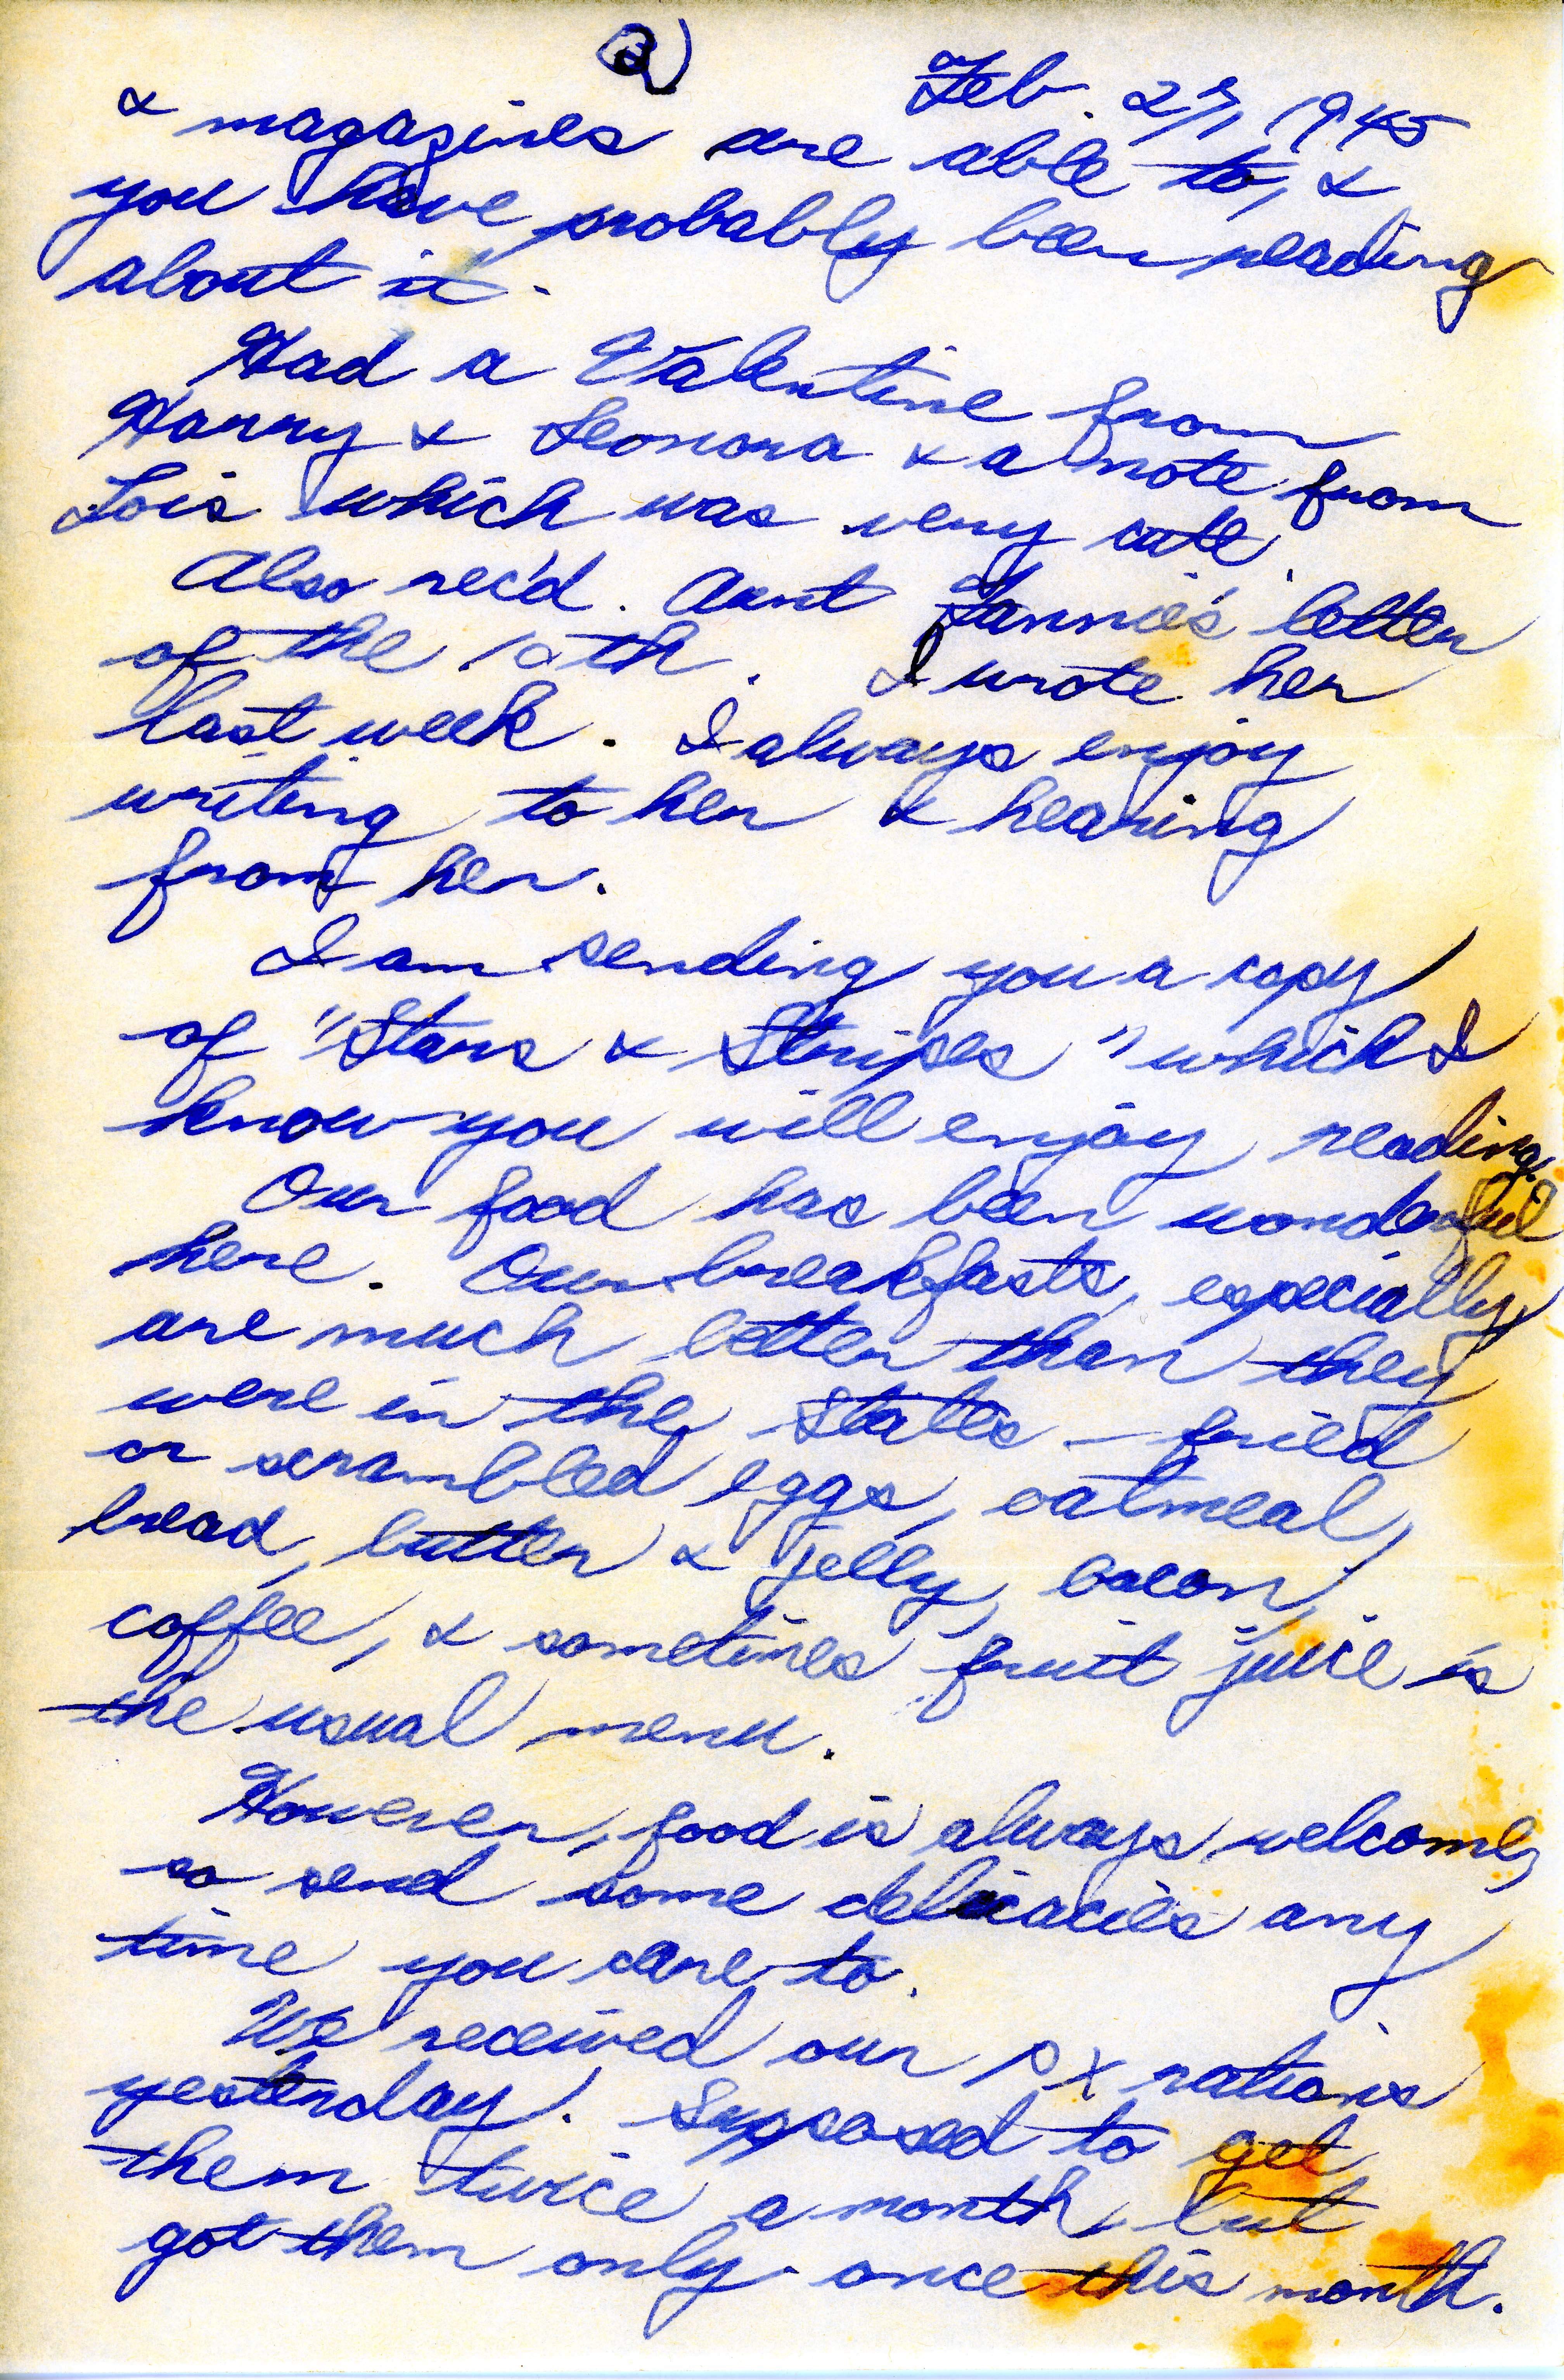 2)
Feb. 27, 1945
& magazines are able to, &
you have probably been reading
about it.
Had a Valentine from
Harry & Leonora & a note from
Lois which was very cute.
Also rec'd. Aunt Fannie's letter
of the 10th. I wrote her
last week. I always enjoy
writing to her & hearing
from her.
I am sending you a copy
of "Stars & Stripes" which I
know you will enjoy reading.
Our food has been wonderful
here. Our breakfasts, especially,
are much better than they
were in the States — fried
or scrambled eggs, oatmeal,
bread, butter & jelly, bacon,
coffee, & sometimes fruit juice is
the usual menu.
However, food is always welcome,
so send some delicacies any
time you care to.
We received our PX rations
yesterday. Supposed to get
them twice a month, but
got them only once this month.